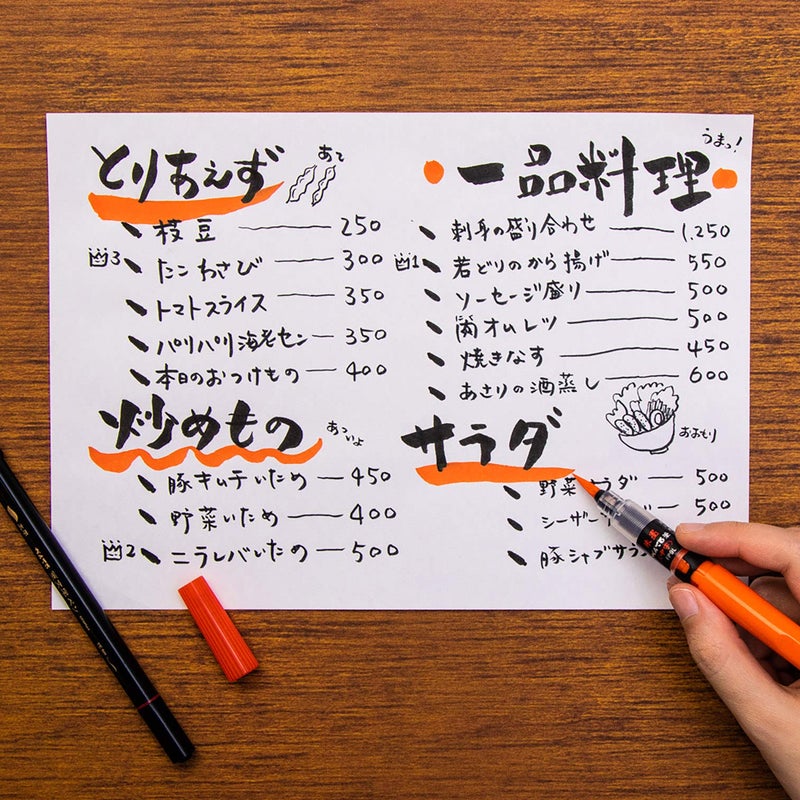 とりあえず
あて
枝豆 250
3 たこわさび 300
トマトスライス 350
パリパリ海老セン 350
本日のおつけもの 400
炒めもの
あついよ
豚キムチいため 450
野菜いため 400
2 ニラレバいため 500
うまっ!
一品料理
刺身の盛り合わせ 1,250
1 若どりのから揚げ 550
ソーセージ盛り 500
肉オムレツ 500
焼きなす 450
あさりの酒蒸し 600
サラダ
おおもり
野菜サラダ 500
シーザー 500
豚シャブサラ